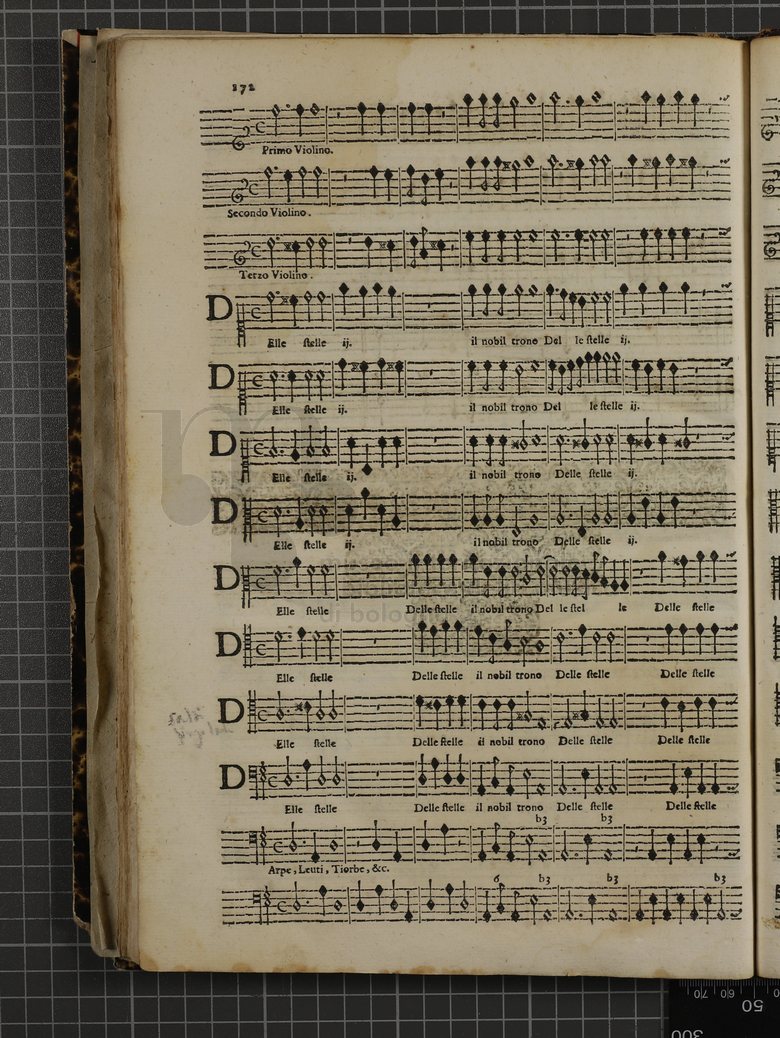 172
Primo Violino.
Secondo Violino.
Terzo Violino.
DElle ſtelle ij. il nobil trono Del le ſtelle ij.
DElle ſtelle ij. il nobil trono Del le ſtelle ij.
DElle ſtelle ij. il nobil trono Delle ſtelle ij.
DElle ſtelle ij. il nobil trono Delle ſtelle ij.
DElle ſtelle Delle ſtelle il nobil trono Del le ſtel le Delle ſtelle
di bologna
DElle ſtelle Delle ſtelle il nobil trono Delle ſtelle Delle ſtelle
DElle ſtelle Delle ſtelle il nobil trono Delle ſtelle Delle ſtelle
DElle ſtelle Delle ſtelle il nobil trono Delle ſtelle Delle ſtelle
b3 b3
Arpe, Leuti, Tiorbe, &c.
6 b3 b3 b3
70 60 50
300